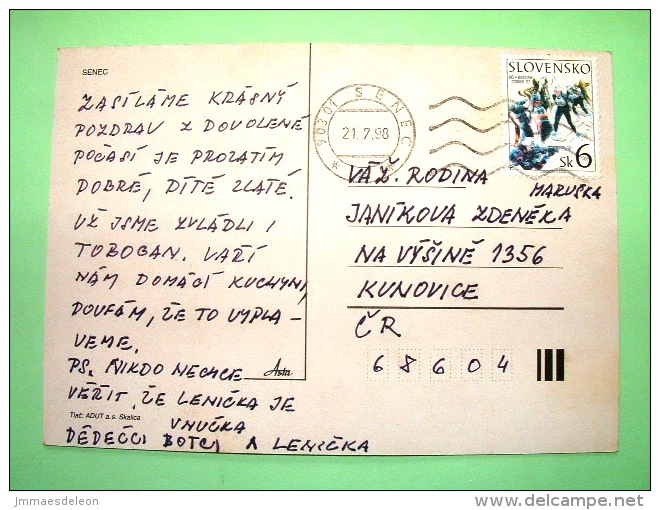 SENEC
ZASÍLÁME KRÁSNÝ
POZDRAV Z DOVOLENÉ
POČASÍ JE PROZATÍM
DOBRÉ, DÍTĚ ZLATÉ.
UŽ JSME ZVLÁDLI I
TOBOGAN. VAŘÍ
NÁM DOMÁCÍ KUCHYNI,
DOUFÁM, ŽE TO VYPLA-
VEME.
PS. NIKDO NECHCE
VĚŘIT, ŽE LENIČKA JE
VNUČKA
DĚDEČCI BOTCI A LENIČKA
Tlač: ADUT a.s. Skalica
Asta
903 01 SENEC
21.7.98
SLOVENSKO
Sk 6
VÁŽ. RODINA
MARUŠKA
JANÍKOVA ZDEŇKA
NA VÝŠINĚ 1356
KUNOVICE
ČR
68604
jmmaesdeleon
delcampe.net